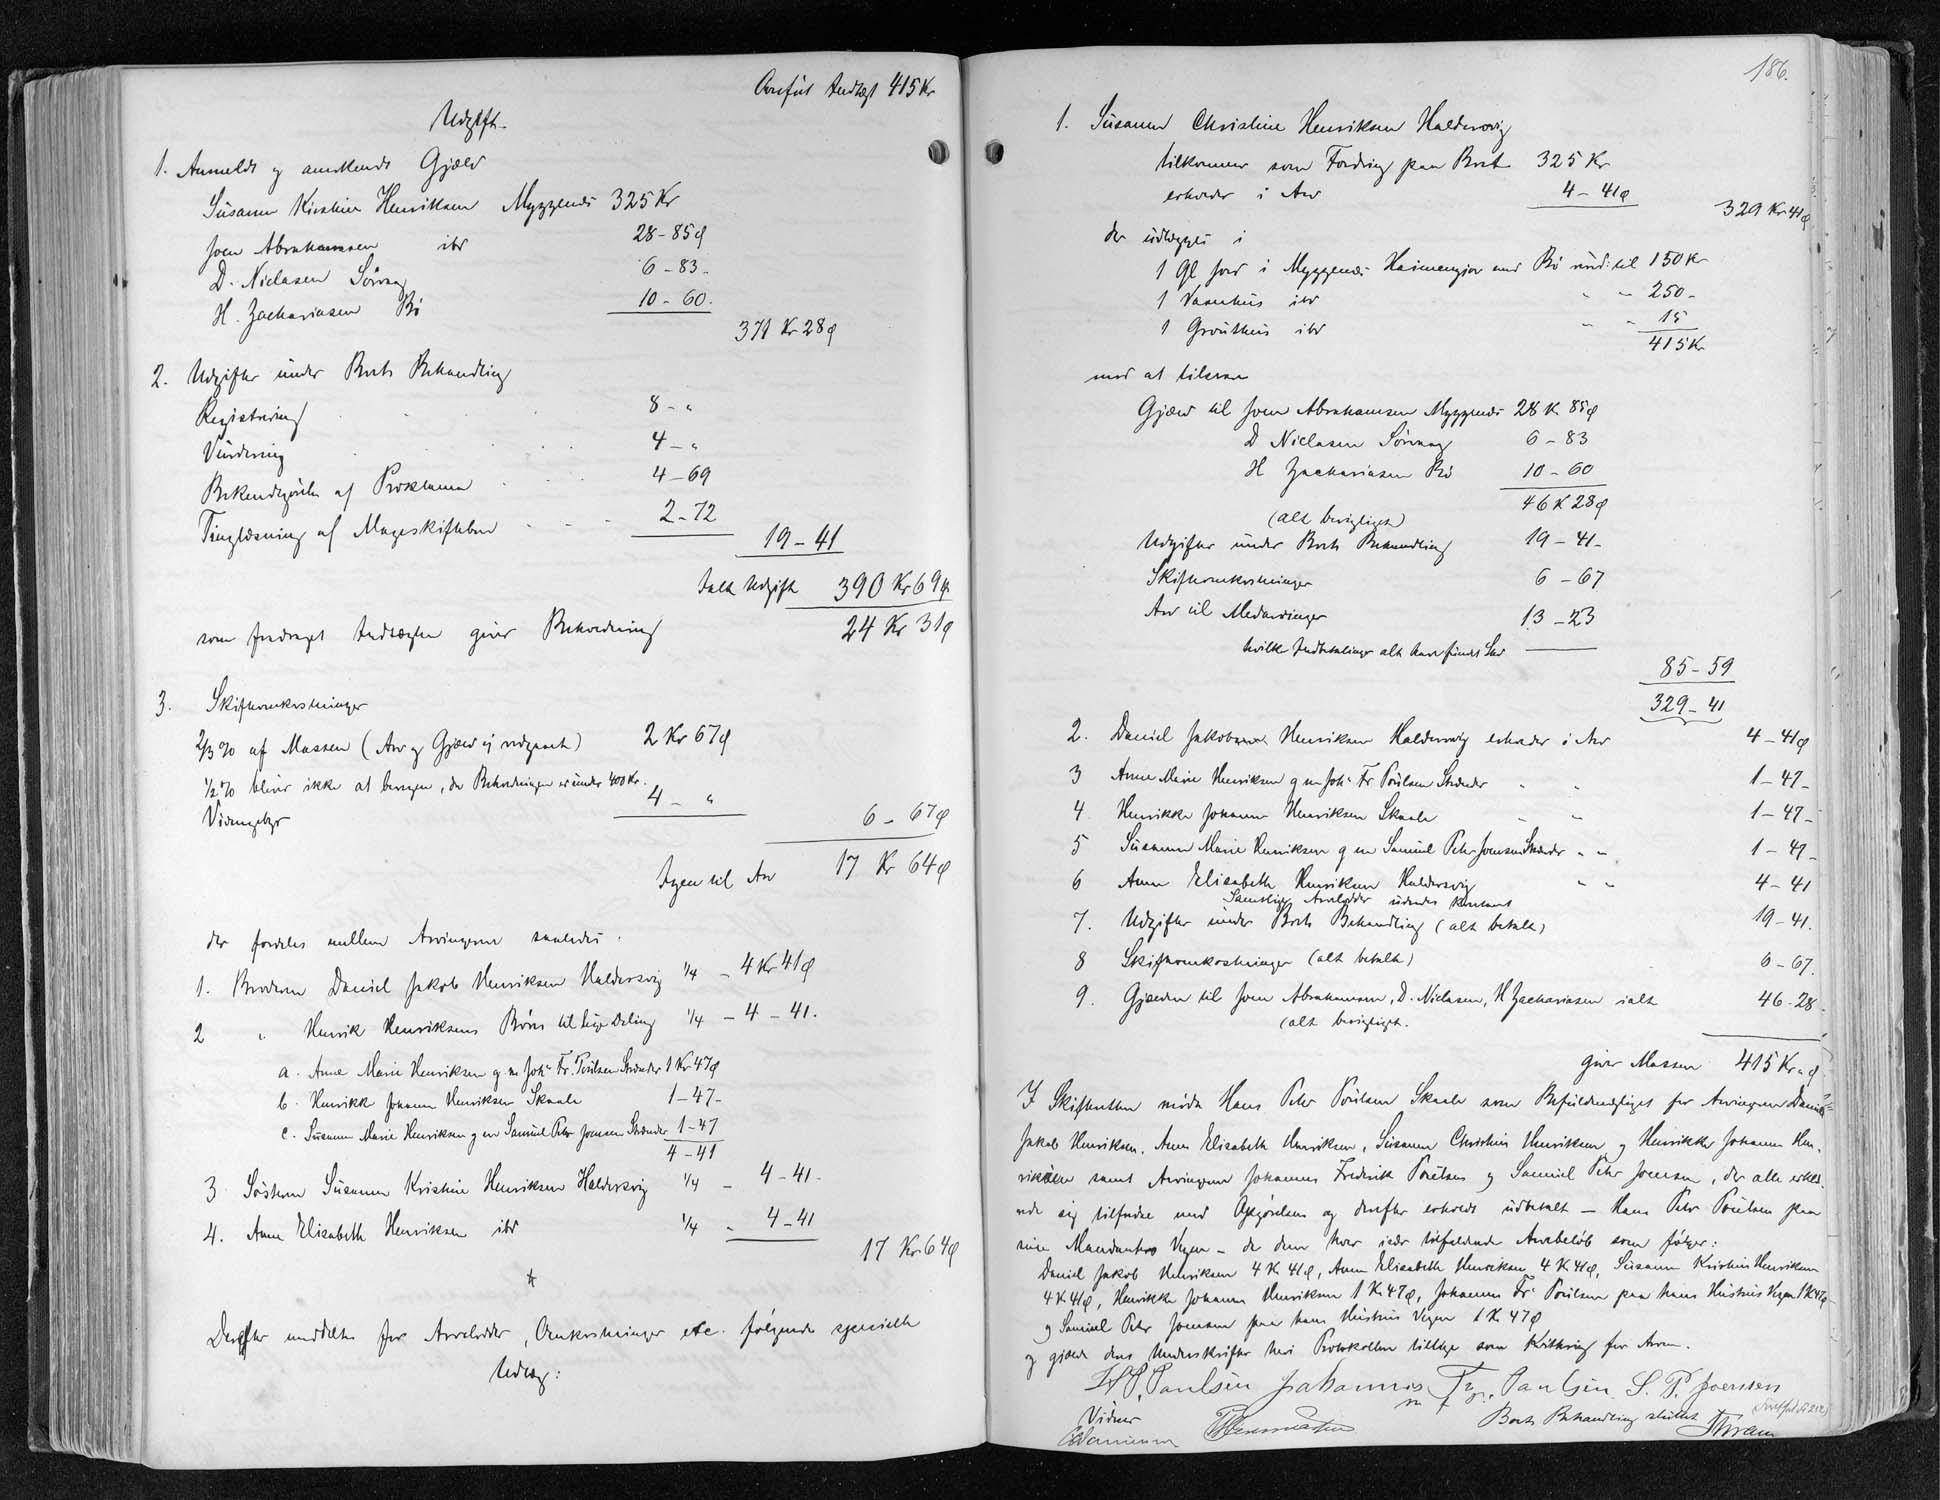 Overført Indtægt 415 Kr
Udgift.
1. Anmeldt og anerkendt Gjæld
Susanne Kirstine Henriksen Myggenæs 325 Kr
Joen Abrahamsen ibd 28-85 Ø
D. Niclasen Sörvaag 6-83-
H. Zachariasen Bö 10-60.
371 Kr 28 Ø
2. Udgifter under Boets Behandling
Registrering 8-"
Vurdering 4-"
Bekendtgörelse af Proklama 4-69
Tinglæsning af Mageskiftebrev 2-72
19-41
Ialt Udgift 390 Kr 69 Ø
som fradraget Indtægten giver Beholdning 24 Kr 31 Ø
3. Skifteomkostninger
2/3 % af Massen (Arv og Gjæld ) 2 Kr 67 Ø
1/2 % bliver ikke at beregne, da Beholdningen er under 400 Kr.
Vidnegebyr 4-"
6-67 Ø
Igen til Arv 17 Kr 64 Ø
der fordeles mellem Arvingerne saaledes.
1. Broderen Daniel Jakob Henriksen Haldersvig 1/4 - 4 Kr 41 Ø
2 " Henrik Henriksens Börn til lige Deling 1/4 - 4-41.
a. Anne Marie Henriksen g. m. Joh: Fr. Poulsen Strænder 1 Kr 47 Ø
b. Henrikke Johanne Henriksen Skaale 1-47-
c. Susanne Marie Henriksen g m Samuel Peter Joensen Strænder 1-47
4-41
3. Sösteren Susanne Kristine Henriksen Haldersvig 1/4 - 4-41.
4. Anne Elisabeth Henriksen ibd 1/4 - 4-41
17 Kr 64 Ø
Derefter meddeltes for Arvelodder, Omkostninger etc. følgende specielle
Udlæg:
186.
1. Susanne Christine Henriksen Haldersvig
tilkommer som Fordring paa Boet 325 Kr
erholder i Arv 4-41 Ø
329 Kr 41 Ø
der udlægges i
1 Gl Jord i Myggenæs Heimangjor med Bö vurd: til 150 Kr
1 Vaanhus ibd " - 250-
1 Grouthus ibd " - 15
415 Kr
med at tilsvare
Gjæld til Joen Abrahamsen Myggenæs 28 K 85 Ø
D Niclasen Sörvaag 6-83
H Zachariasen Bö 10-60
46 K 28 Ø
(alt berigtiget)
Udgifter under Boets Behandling 19-41-
Skifteomkostninger 6-67
Arv til Medarvinger 13-23
hvilke Indbetalinger alt have fundet Sted
85-59
329-41
2. Daniel Jakob Henriksen Haldersvig erholder i Arv 4-41 Ø
3 Anne Marie Henriksen g m Joh: Fr Poulsen Strænder " " 1-47-
4 Henrikke Johanne Henriksen Skaale " " 1-47-
5 Susanne Marie Henriksen g m Samuel Peter Joensen Strænder " " 1-47-
6 Anne Elisabeth Henriksen Haldersvig " " 4-41
Samtlige Arvelodder udredes kontant
7. Udgifter under Boets Behandling (alt betalt) 19-41.
8 Skifteomkostninger (alt betalt) 6-67.
9. Gjælden til Joen Abrahamsen, D. Niclasen, H Zachariasen ialt 46-28
(alt berigtiget.
giver Massen 415 Kr " Ø
I Skifteretten mödte Hans Peter Poulsen Skaale som Befuldmægtiget for Arvingerne Daniel
Jakob Henriksen, Anne Elisabeth Henriksen, Susanne Christine Henriksen og Henrikke Johanne Hen-
riksen samt Arvingerne Johannes Frederik Poulsen og Samuel Peter Joensen, der alle erklæ-
rede sig tilfredse med Opgörelsen og derefter erholdt udbetalt - Hans Peter Poulsen paa
sine Mandanters Vegne - de dem hver især tilfaldende Arvebelöb som fölger:
Daniel Jakob Henriksen 4 K 41 Ø, Anne Elisabeth Henriksen 4 K 41 Ø, Susanne Kristine Henriksen
4 K 41 Ø, Henrikke Johanne Henriksen 1 K 47 Ø, Johannes Fr: Poulsen paa hans Hustrus Vegne 1 K 47 Ø
og Samuel Peter Joensen paa hans Hustrus Vegne 1 K 47 Ø
og gjælde deres Underskrifter heri Protokollen tillige som Kvittering for Arven.
H. P. Paulsen Johannes Fr. Paulsen S. P. Joensen
m f P.
Vidner Boets Behandling sluttet